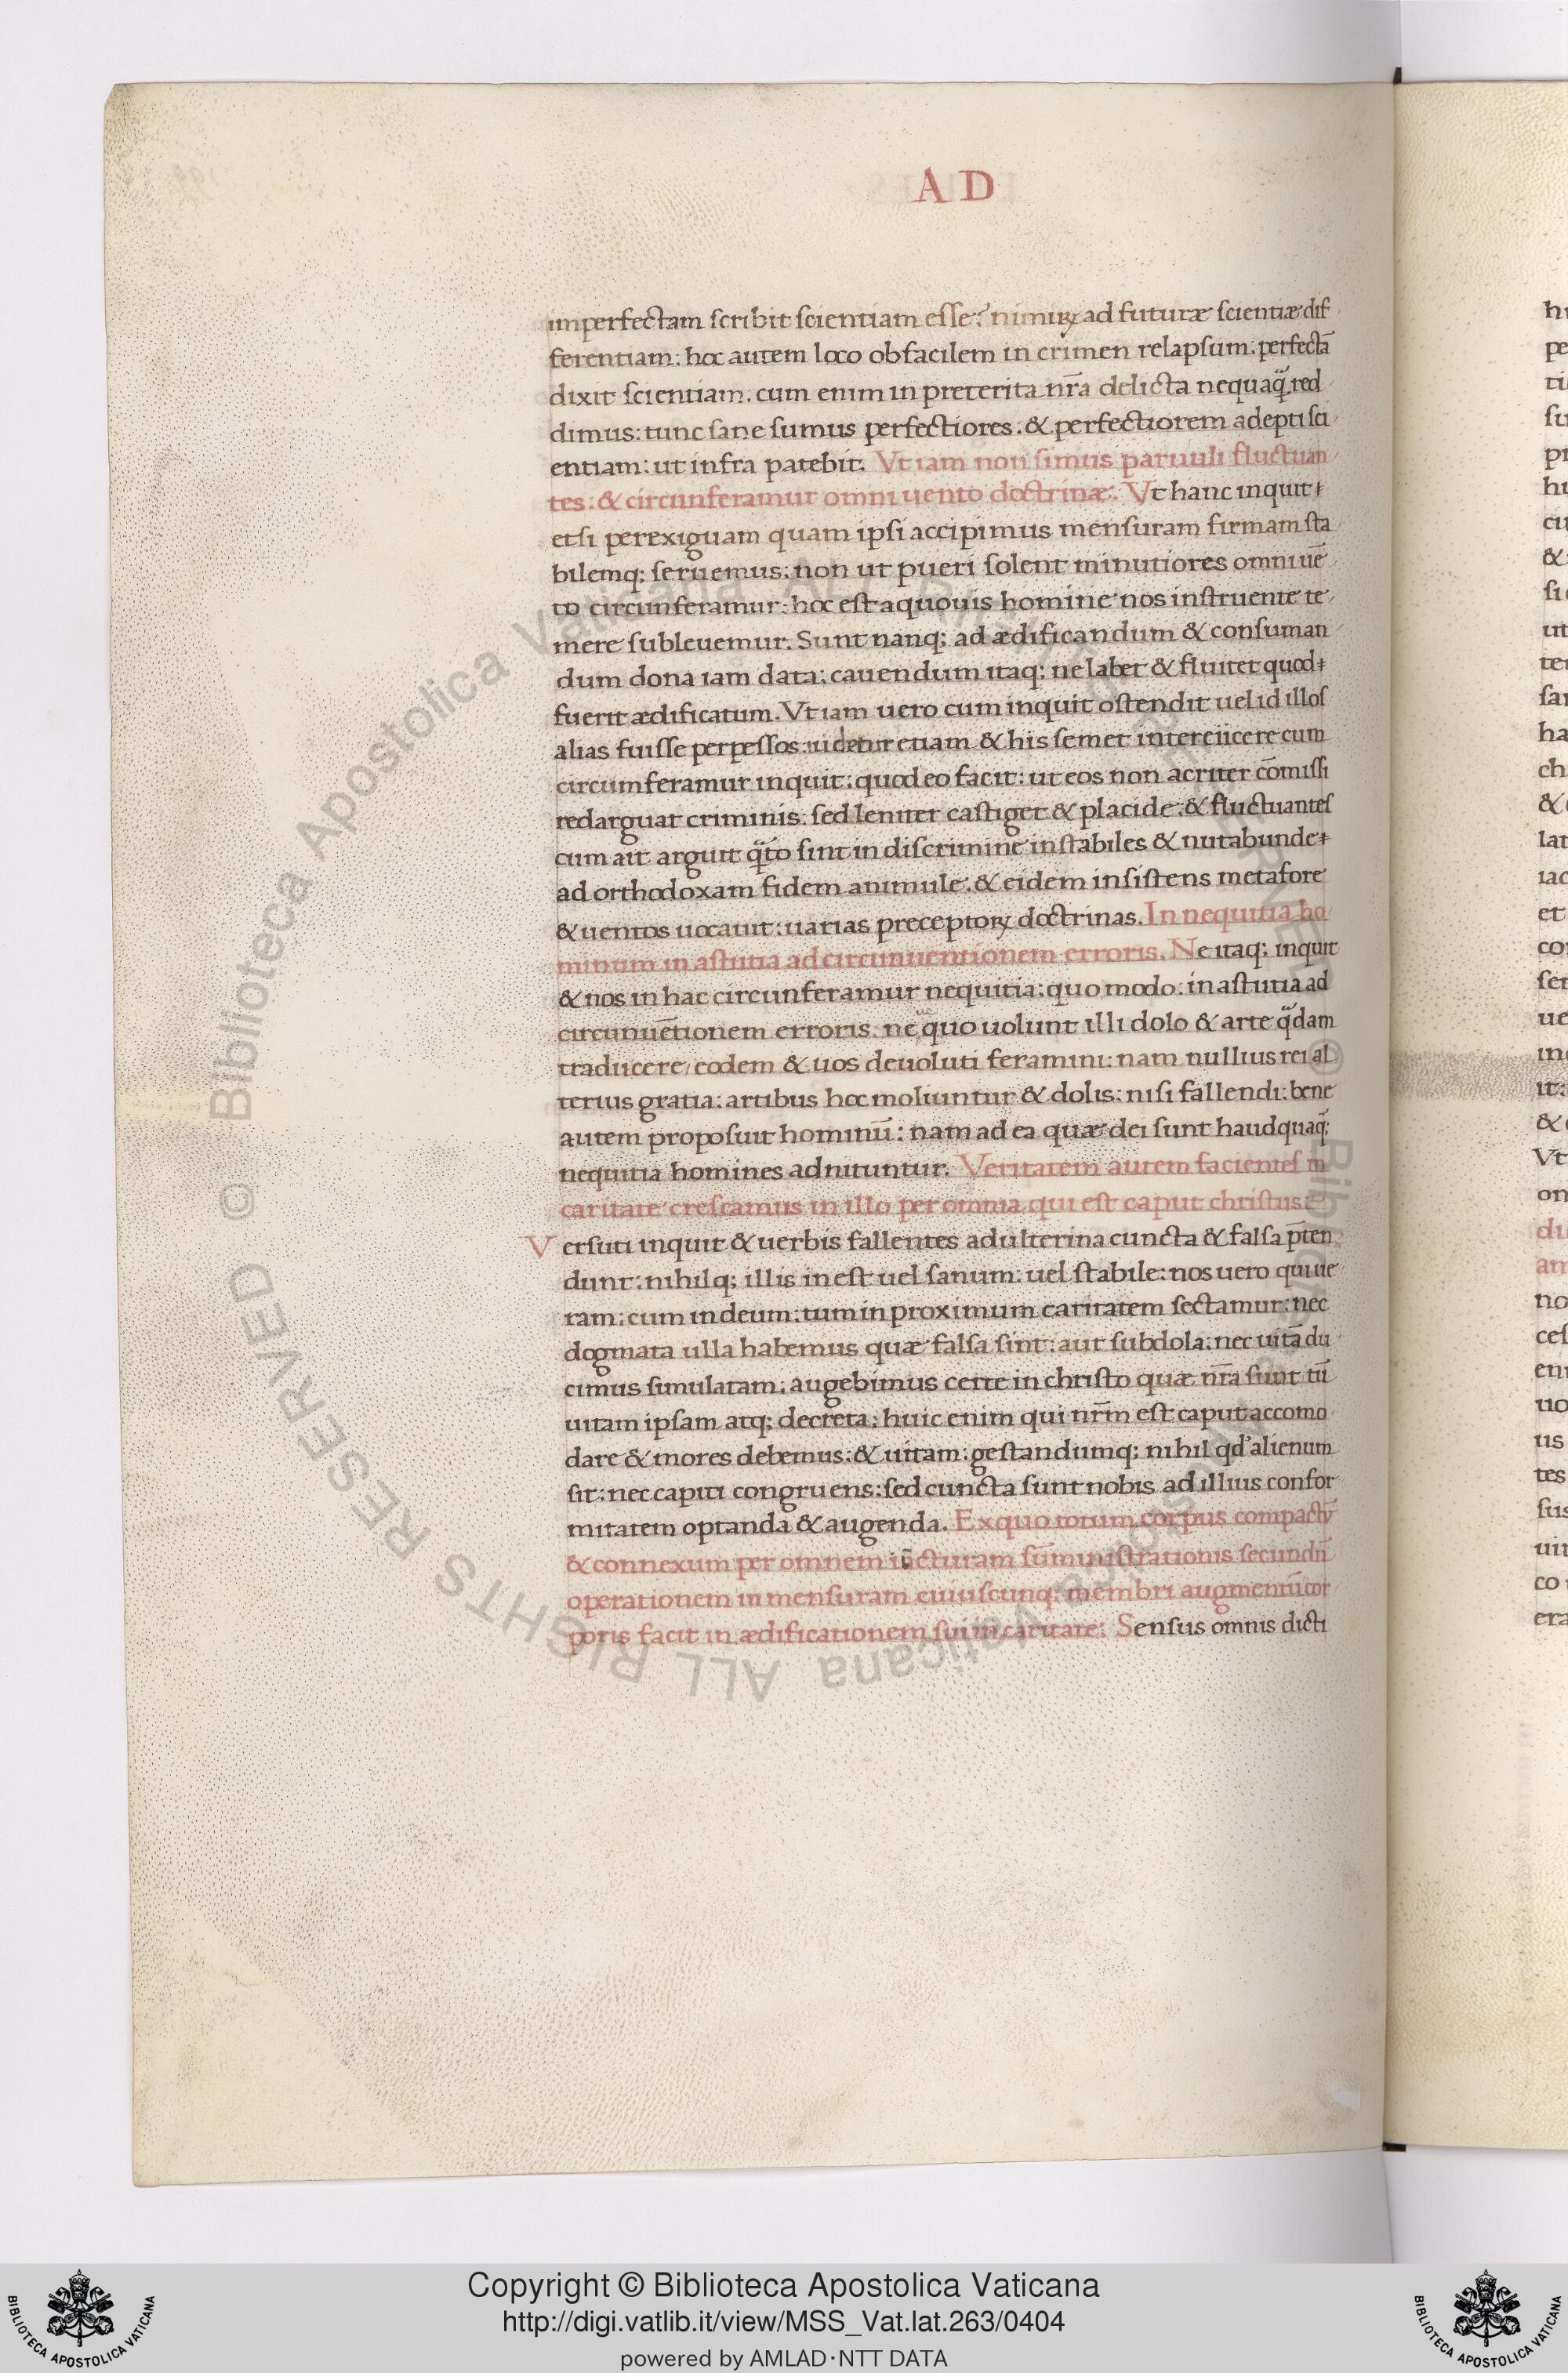 A D
imperfectam scribit scientiam esse? nimiꝝ ad futuræ scientiæ dif
ferentiam: hoc autem loco ob facilem in crimen relapsum. perfectā
dixit scientiam: cum enim in preterita nr̄a delicta nequaq̃ red
dimus: tunc sane sumus perfectiores. & perfectiorem adepti sci
entiam: ut infra patebit. Vt iam non simus paruuli fluctuan
tes: & circunferamur omni uento doctrinæ. Vt hanc inquit
etsi perexiguam quam ipsi accipimus mensuram firmam sta
bilemq; seruemus: non ut pueri solent minutiores omni uē
to circunferamur: hoc est a quouis homine nos instruente te
mere subleuemur. Sunt nanq; ad ædificandum & consuman
dum dona iam data: cauendum itaq; ne labet & fluitet quod
fuerit ædificatum. Vt iam uero cum inquit ostendit uel id illos
alias fuisse perpessos: uidetur etiam & his semet intereiicere cum
circumferamur inquit: quod eo facit: ut eos non acriter cōmissi
redarguat criminis: sed leniter castiget & placide: & fluctuantes
cum ait arguit q̃to sint in discrimine instabiles & nutabunde
ad orthodoxam fidem animule: & eidem insistens metafore
& uentos uocauit: uarias preceptoꝝ doctrinas. In nequitia ho
minum in astutia ad circunuentionem erroris. Ne itaq; inquit
& nos in hac circunferamur nequitia: quo modo: in astutia ad
circunuētionem erroris. ne quo uolunt illi dolo & arte q̃dam
traducere, eodem & uos deuoluti feramini: nam nullius rei al
terius gratia: artibus hoc moliuntur & dolis: nisi fallendi: bene
autem proposuit hominū: nam ad ea quæ dei sunt haudquaq̃
nequitia homines adnituntur. Veritatem autem facientes in
caritate crescamus in illo per omnia qui est caput christus.
Versuti inquit & uerbis fallentes adulterina cuncta & falsa p̄ten
dunt: nihilq; illis inest uel sanum: uel stabile: nos uero qui ue
ram: cum in deum: tum in proximum caritatem sectamur: nec
dogmata ulla habemus quæ falsa sint: aut subdola: nec uitā du
cimus simulatam: augebimus certe in christo quæ nr̄a sunt tū
uitam ipsam atq; decreta: huic enim qui nr̄m est caput accomo
dare & mores debemus: & uitam: gestandumq; nihil qd' alienum
sit: nec capiti congruens: sed cuncta sunt nobis ad illius confor
mitatem optanda & augenda. Ex quo totum corpus compactū
& connexum per omnem iūcturam sūministrationis secundū
operationem in mensuram cuiuscunq; membri augmentū cor
poris facit in ædificationem sui in caritate: Sensus omnis dicti
Copyright © Biblioteca Apostolica Vaticana
http://digi.vatlib.it/view/MSS_Vat.lat.263/0404
powered by AMLAD·NTT DATA
BIBLIOTECA APOSTOLICA VATICANA
BIBLIOTECA APOSTOLICA VATICANA